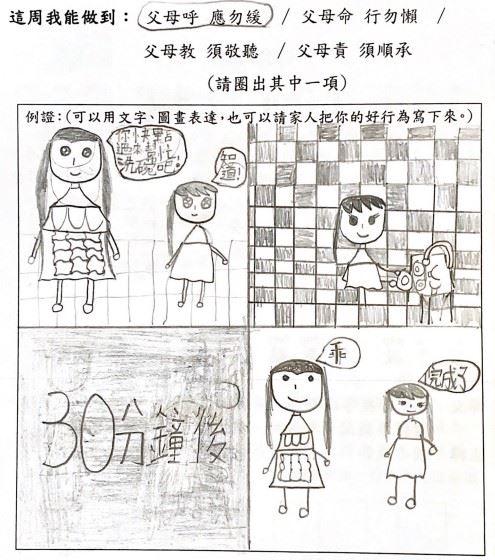 這周我能做到：父母呼 應勿緩 / 父母命 行勿懶 /
父母教 須敬聽 / 父母責 須順承
(請圈出其中一項)
例證：(可以用文字、圖畫表達，也可以請家人把你的好行為寫下來。)
你快點
過來幫忙
洗碗吧!
知
道!
30分鐘後
乖
完成了